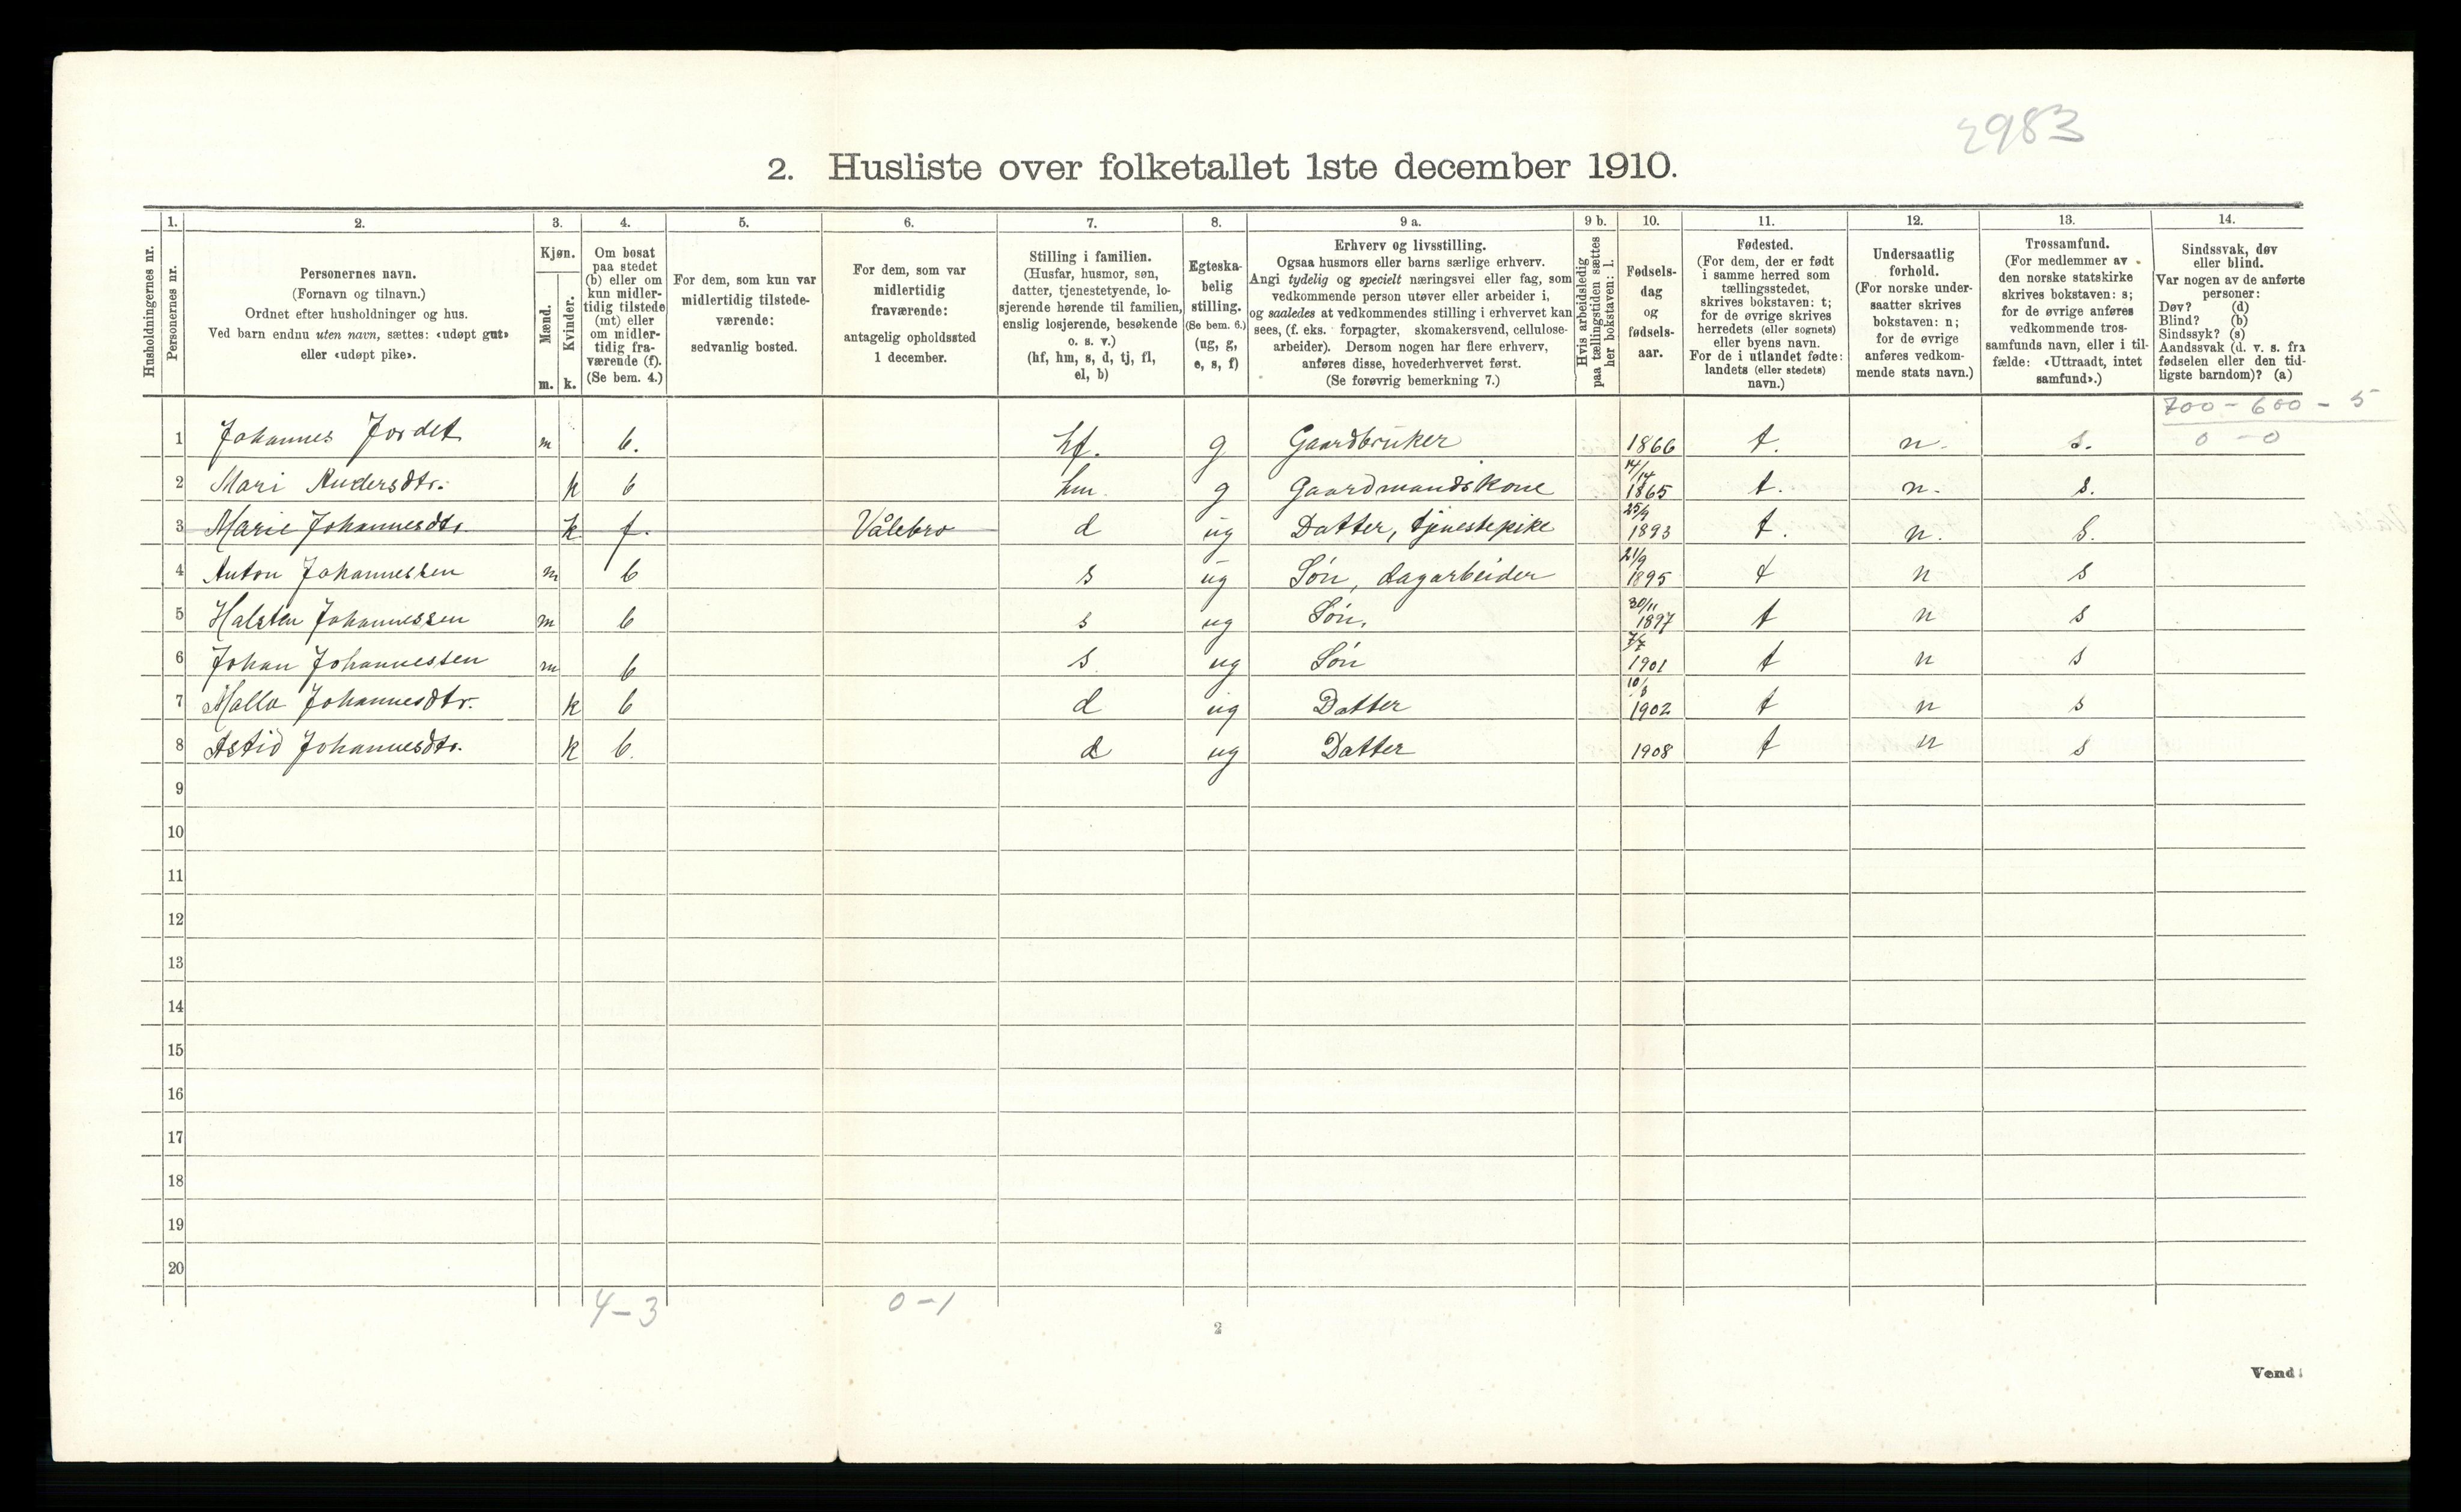 2983
2. Husliste over folketallet 1ste december 1910.
Husholdningernes nr.
1. Personernes nr.
2. Personernes navn.
(Fornavn og tilnavn.)
Ordnet efter husholdninger og hus.
Ved barn endnu uten navn, sættes: «udøpt gut»
eller «udøpt pike».
3. Kjøn.
Mænd. m.
Kvinder. k.
4. Om bosat
paa stedet
(b) eller om
kun midler-
tidig tilstede
(mt) eller
om midler-
tidig fra-
værende (f).
(Se bem. 4.)
5. For dem, som kun var
midlertidig tilstede-
værende:
sedvanlig bosted.
6. For dem, som var
midlertidig
fraværende:
antagelig opholdssted
1 december.
7. Stilling i familien.
(Husfar, husmor, søn,
datter, tjenestetyende, lo-
sjerende hørende til familien,
enslig losjerende, besøkende
o. s. v.)
(hf, hm, s, d, tj, fl,
el, b)
8. Egteska-
belig
stilling.
(Se bem. 6.)
(ug, g,
e, s, f)
9 a. Erhverv og livsstilling.
Ogsaa husmors eller barns særlige erhverv.
Angi tydelig og specielt næringsvei eller fag, som
vedkommende person utøver eller arbeider i,
og saaledes at vedkommendes stilling i erhvervet kan
sees, (f. eks. forpagter, skomakersvend, cellulose-
arbeider). Dersom nogen har flere erhverv,
anføres disse, hovederhvervet først.
(Se forøvrig bemerkning 7.)
9 b. Hvis arbeidsledig
paa tællingstiden sættes
her bokstaven: l.
10. Fødsels-
dag
og
fødsels-
aar.
11. Fødested.
(For dem, der er født
i samme herred som
tællingsstedet,
skrives bokstaven: t;
for de øvrige skrives
herredets (eller sognets)
eller byens navn.
For de i utlandet fødte:
landets (eller stedets)
navn.)
12. Undersaatlig
forhold.
(For norske under-
saatter skrives
bokstaven: n;
for de øvrige
anføres vedkom-
mende stats navn.)
13. Trossamfund.
(For medlemmer av
den norske statskirke
skrives bokstaven: s;
for de øvrige anføres
vedkommende tros-
samfunds navn, eller i til-
fælde: «Uttraadt, intet
samfund».)
14. Sindssvak, døv
eller blind.
Var nogen av de anførte
personer:
Døv? (d)
Blind? (b)
Sindssyk? (s)
Aandssvak (d. v. s. fra
fødselen eller den tid-
ligste barndom)? (a)
700 - 600 - 5
0 - 0
1 Johannes Jordet m b. hf. g Gaardbruker 1866 t. n. s.
2 Mari Andersdtr. k b hm. g Gaardmandskone 14/ 1865 t. n. s.
3 Marie Johannesdtr. k f. Vålebro d ug Datter, tjenestepike 25/9 1893 t. n. s.
4 Anton Johannessen m b s ug Søn, dagarbeider 21/9 1895 t n s
5 Halsten Johannessen m b s ug Søn. 30/11 1897 t n s
6 Johan Johannessen m b s. ug Søn 7/7 1901 t n s
7 Malla Johannesdtr. k b d ug Datter 10/3 1902 t n s
8 Astid Johannesdtr. k b. d ug Datter 1908 t n s
9
10
11
12
13
14
15
16
17
18
19
20
4-3 0-1
2
Vend!